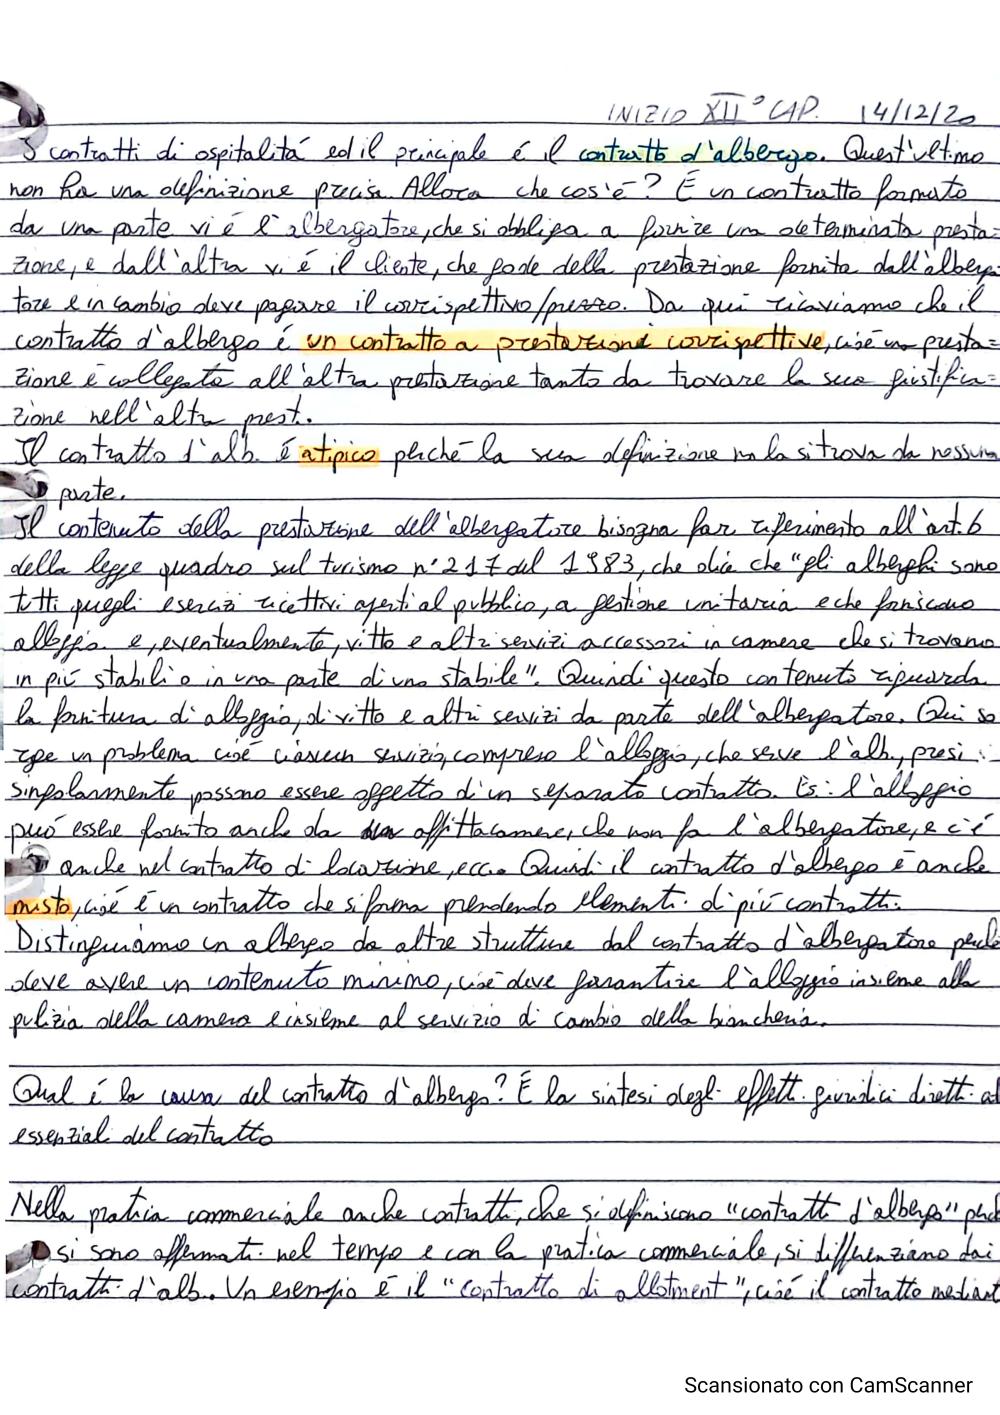 INIZIO XII° CAP. 14/12/20
I contratti di ospitalitá ed il principale é il contratto d'albergo. Quest'ultimo
non ha una definizione precisa. Allora che cos'é? É un contratto formato
da una parte vi é l'albergatore, che si obbliga a fornire una determinata presta=
zione, e dall'altra vi é il cliente, che gode della prestazione fornita dall'alberga
tore e in cambio deve pagare il corrispettivo/prezzo. Da qui ricaviamo che il
contratto d'albergo é un contratto a prestazioni corrispettive, cioé una presta=
zione é collegata all'altra prestazione tanto da trovare la sua giustifica=
zione nell'altra prest..
Il contratto d'alb. é atipico perché la sua definizione non la si trova da nessuna
parte.
Il contenuto della prestazione dell'albergatore bisogna far riferimento all'art. 6
della legge quadro sul turismo n° 217 del 1983, che dice che "gli alberghi sono
tutti quegli esercizi ricettivi aperti al pubblico, a gestione unitaria e che forniscono
alloggio e, eventualmente, vitto e altri servizi accessori in camere che si trovano
in piú stabili o in una parte di uno stabile". Quindi questo contenuto riguarda
la fornitura di alloggio, di vitto e altri servizi da parte dell'albergatore. Qui so
rge un problema cioé ciascun servizio, compreso l'alloggio, che serve l'alb., presi
singolarmente possono essere oggetto di un separato contratto. Es: l'alloggio
puó essere fornito anche da affittacamere, che non fa l'albergatore, e c'é
anche nel contratto di locazione, ecc. Quindi il contratto d'albergo é anche
misto, cioé é un contratto che si forma prendendo elementi di piú contratti.
Distinguiamo un albergo da altre strutture dal contratto d'albergatore perché
deve avere un contenuto minimo, cioé deve garantire l'alloggio insieme alla
pulizia della camera e insieme al servizio di cambio della biancheria.
Qual é la causa del contratto d'albergo? É la sintesi degli effetti giuridici diretti ed
essenziali del contratto
Nella pratica commerciale anche contratti, che si definiscono "contratti d'albergo" perché
si sono affermati nel tempo e con la pratica commerciale, si differenziano dai
contratti d'alb. Un esempio é il "contratto di allotment", cioé il contratto mediant
Scansionato con CamScanner